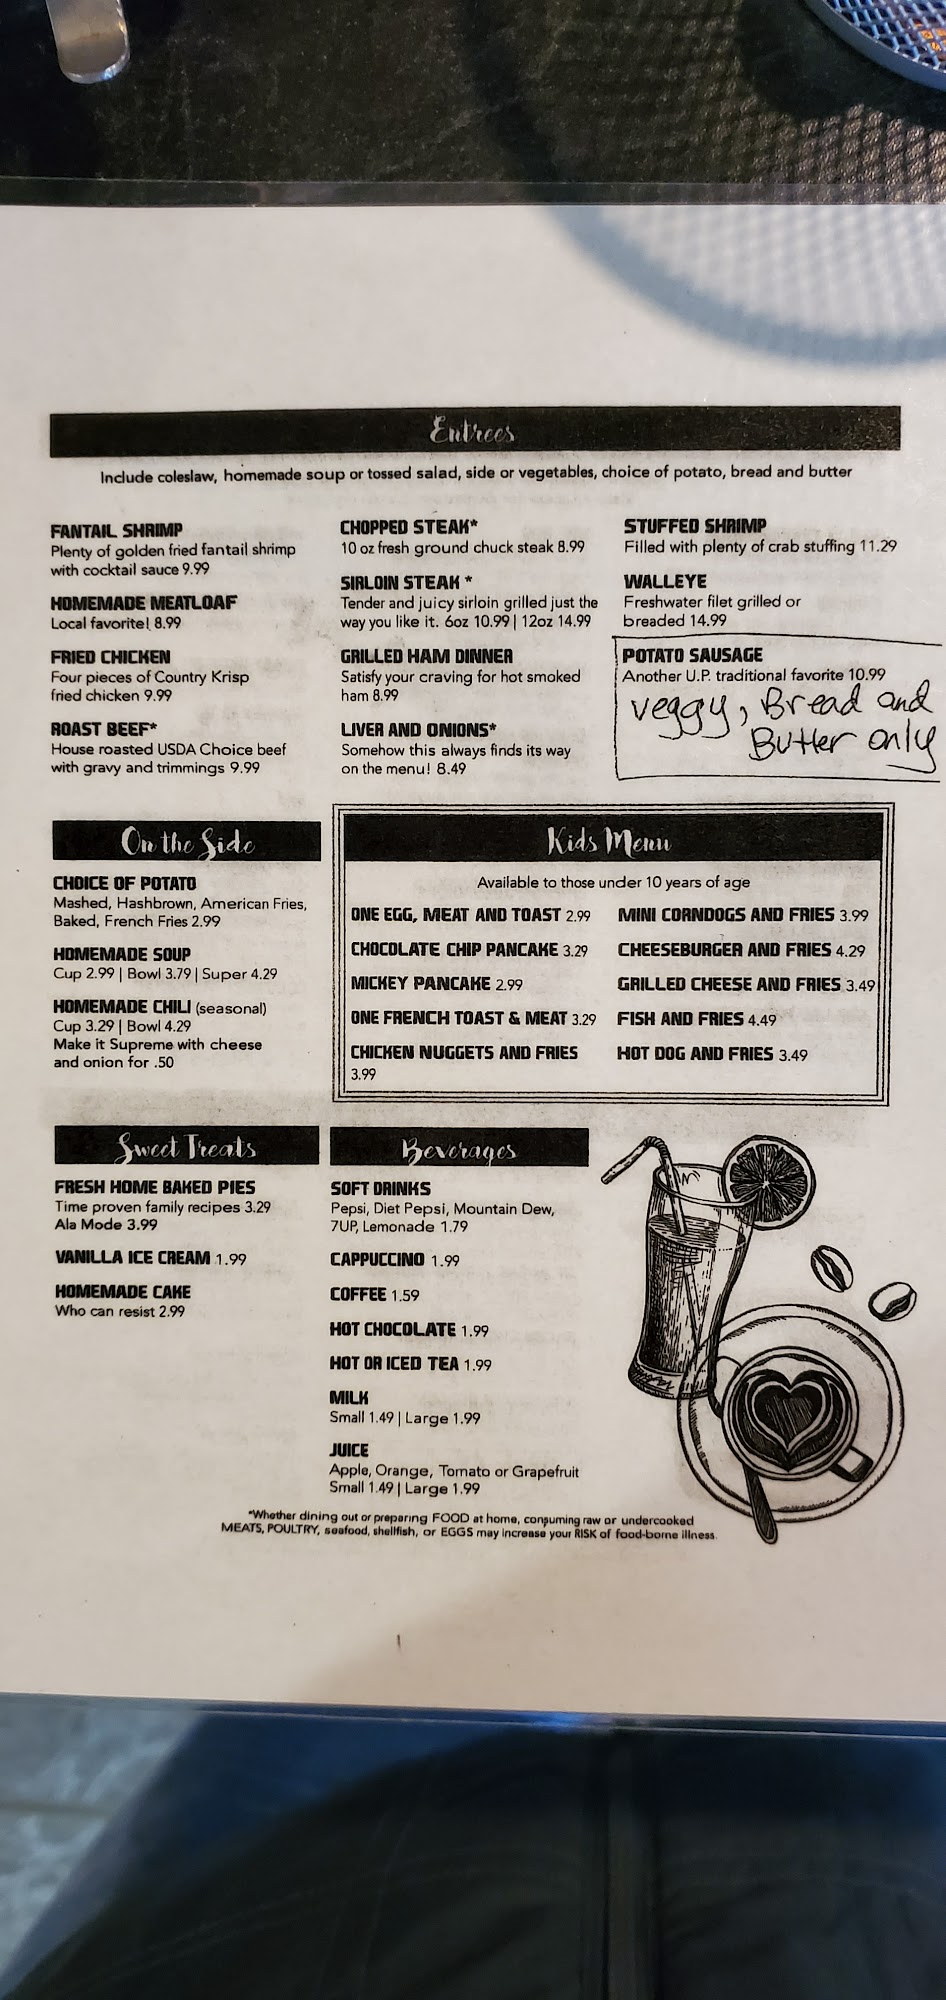 Entrees
Include coleslaw, homemade soup or tossed salad, side or vegetables, choice of potato, bread and butter
FANTAIL SHRIMP
Plenty of golden fried fantail shrimp
with cocktail sauce 9.99
HOMEMADE MEATLOAF
Local favorite! 8.99
FRIED CHICKEN
Four pieces of Country Krisp
fried chicken 9.99
ROAST BEEF*
House roasted USDA Choice beef
with gravy and trimmings 9.99
CHOPPED STEAK*
10 oz fresh ground chuck steak 8.99
SIRLOIN STEAK *
Tender and juicy sirloin grilled just the
way you like it. 6oz 10.99 | 12oz 14.99
GRILLED HAM DINNER
Satisfy your craving for hot smoked
ham 8.99
LIVER AND ONIONS*
Somehow this always finds its way
on the menu! 8.49
STUFFED SHRIMP
Filled with plenty of crab stuffing 11.29
WALLEYE
Freshwater filet grilled or
breaded 14.99
POTATO SAUSAGE
Another U.P. traditional favorite 10.99
veggy, Bread and
Butter only
On the Side
CHOICE OF POTATO
Mashed, Hashbrown, American Fries,
Baked, French Fries 2.99
HOMEMADE SOUP
Cup 2.99 | Bowl 3.79 | Super 4.29
HOMEMADE CHILI (seasonal)
Cup 3.29 | Bowl 4.29
Make it Supreme with cheese
and onion for .50
Kids Menu
Available to those under 10 years of age
ONE EGG, MEAT AND TOAST 2.99
CHOCOLATE CHIP PANCAKE 3.29
MICKEY PANCAKE 2.99
ONE FRENCH TOAST & MEAT 3.29
CHICKEN NUGGETS AND FRIES
3.99
MINI CORNDOGS AND FRIES 3.99
CHEESEBURGER AND FRIES 4.29
GRILLED CHEESE AND FRIES 3.49
FISH AND FRIES 4.49
HOT DOG AND FRIES 3.49
Sweet Treats
FRESH HOME BAKED PIES
Time proven family recipes 3.29
Ala Mode 3.99
VANILLA ICE CREAM 1.99
HOMEMADE CAKE
Who can resist 2.99
Beverages
SOFT DRINKS
Pepsi, Diet Pepsi, Mountain Dew,
7UP, Lemonade 1.79
CAPPUCCINO 1.99
COFFEE 1.59
HOT CHOCOLATE 1.99
HOT OR ICED TEA 1.99
MILK
Small 1.49 | Large 1.99
JUICE
Apple, Orange, Tomato or Grapefruit
Small 1.49 | Large 1.99
*Whether dining out or preparing FOOD at home, consuming raw or undercooked
MEATS, POULTRY, seafood, shellfish, or EGGS may increase your RISK of food-borne illness.